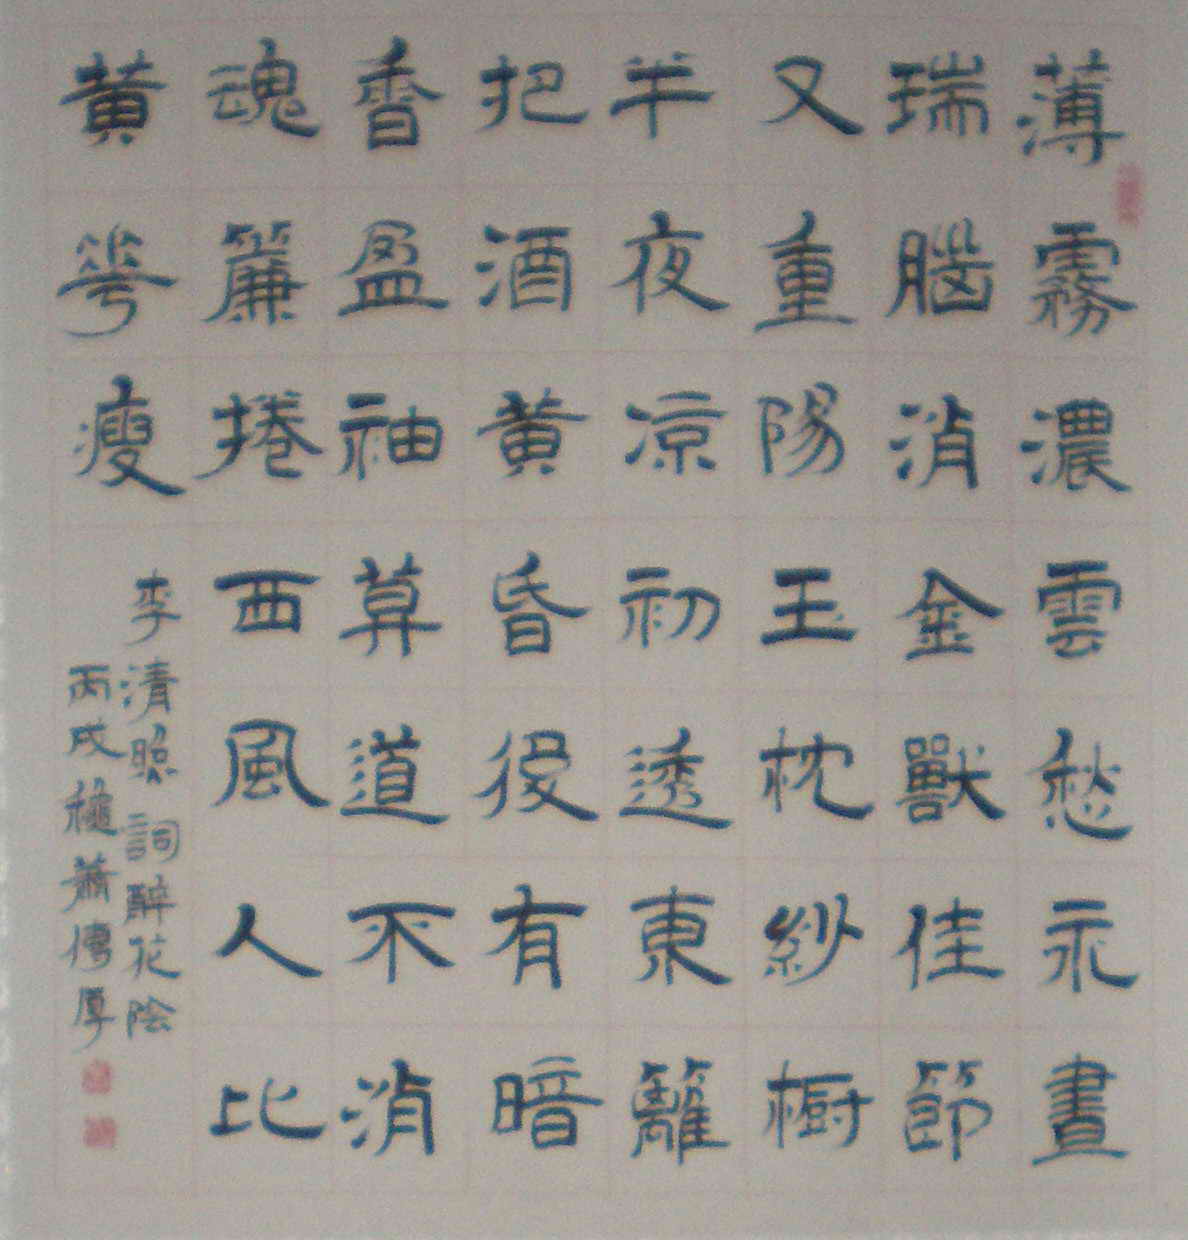 薄霧濃雲愁永晝
瑞腦消金獸佳節
又重陽玉枕紗橱
半夜凉初透東籬
把酒黄昏後有暗
香盈袖莫道不消
魂簾捲西風人比
黄花瘦
李清照詞醉花陰
丙戌穐蕭傳厚